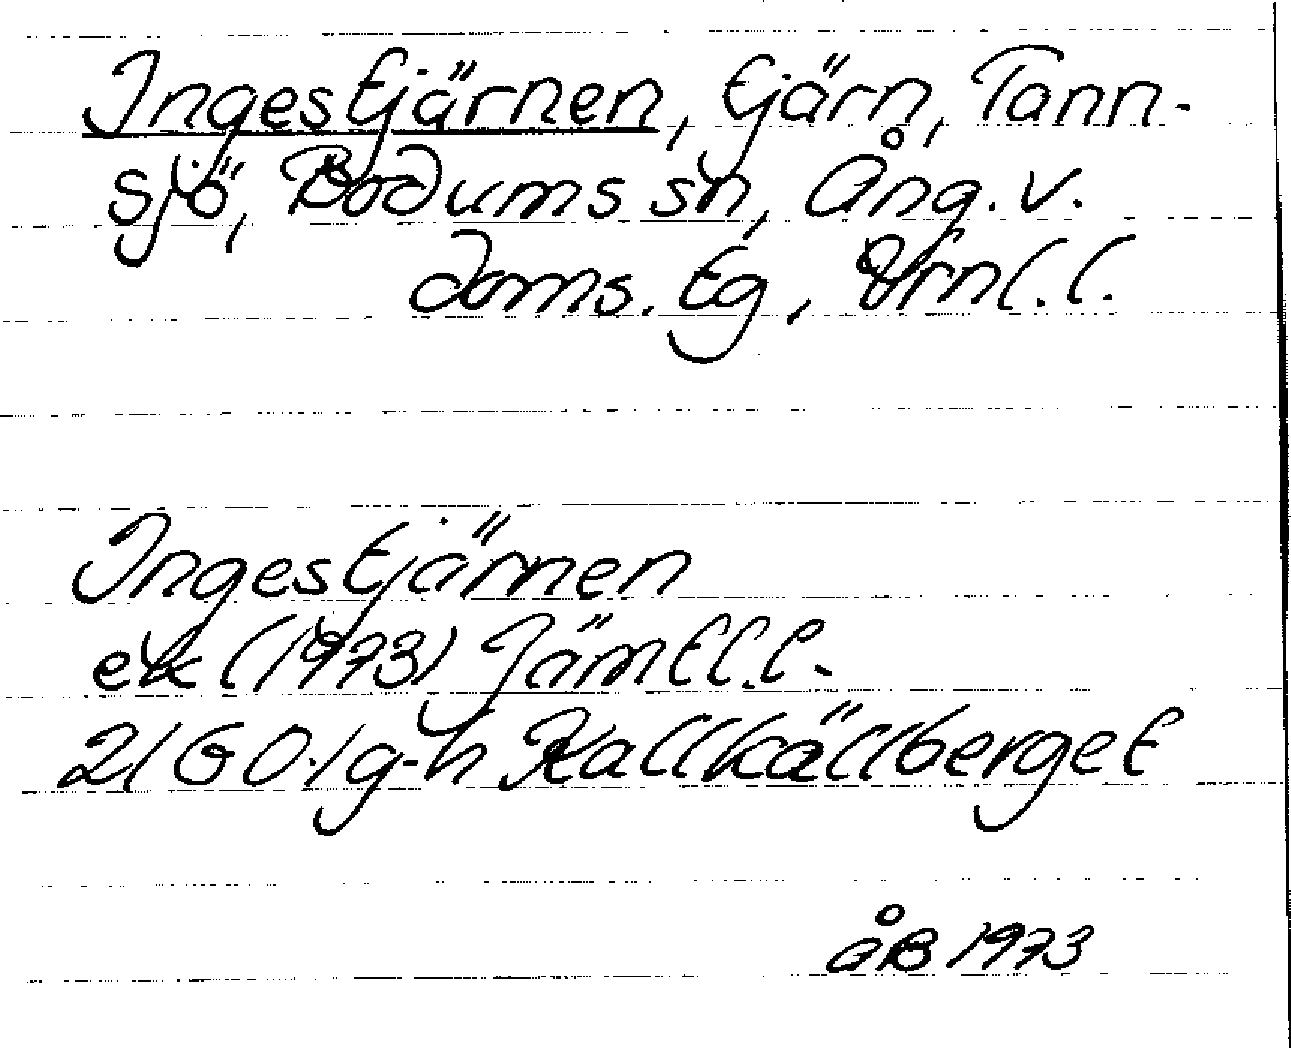 Ingestjärnen, tjärn, Tann-
sjö, Bodums sn, Ång. v.
doms. tg, Vrnl.l.
Ingestjärnen
ek (1973) Jämtl.l.
21 G 0-1 g-h Kallkällberget
åB 1973